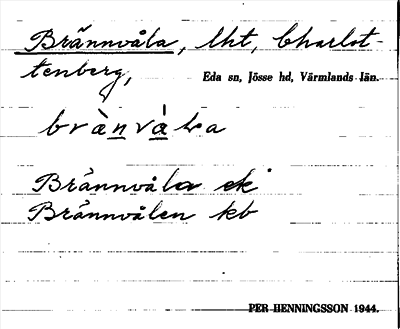 Brännvåla, lht, Charlot-
tenberg,
Eda sn, Jösse hd, Värmlands län.
brànvà la
Brännvåla ek
Brännvålen kb
PER HENNINGSSON 1944.